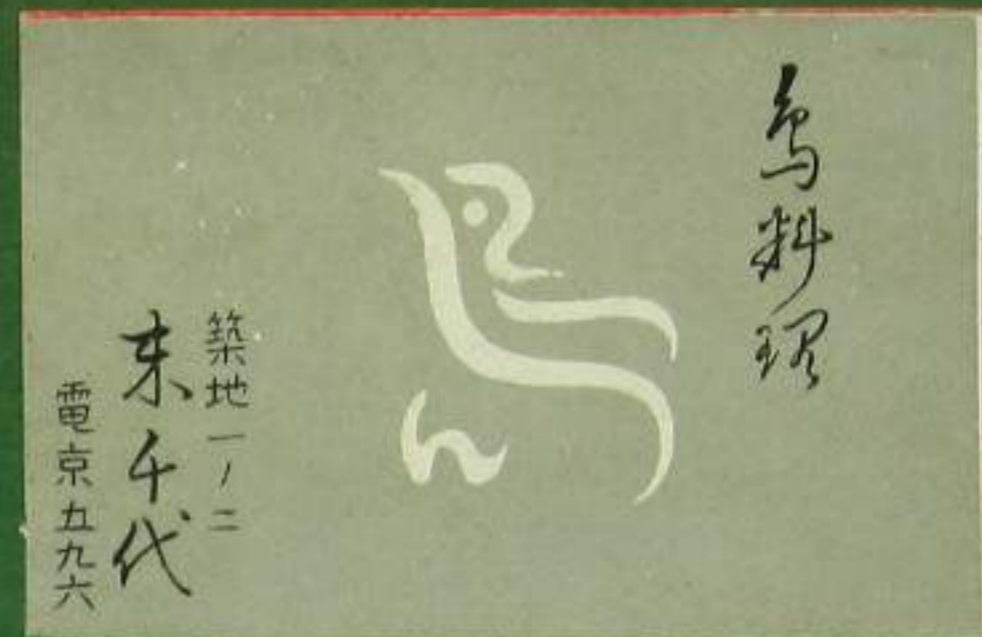 鳥料理
築地一ノ二
末千代
電京五九六